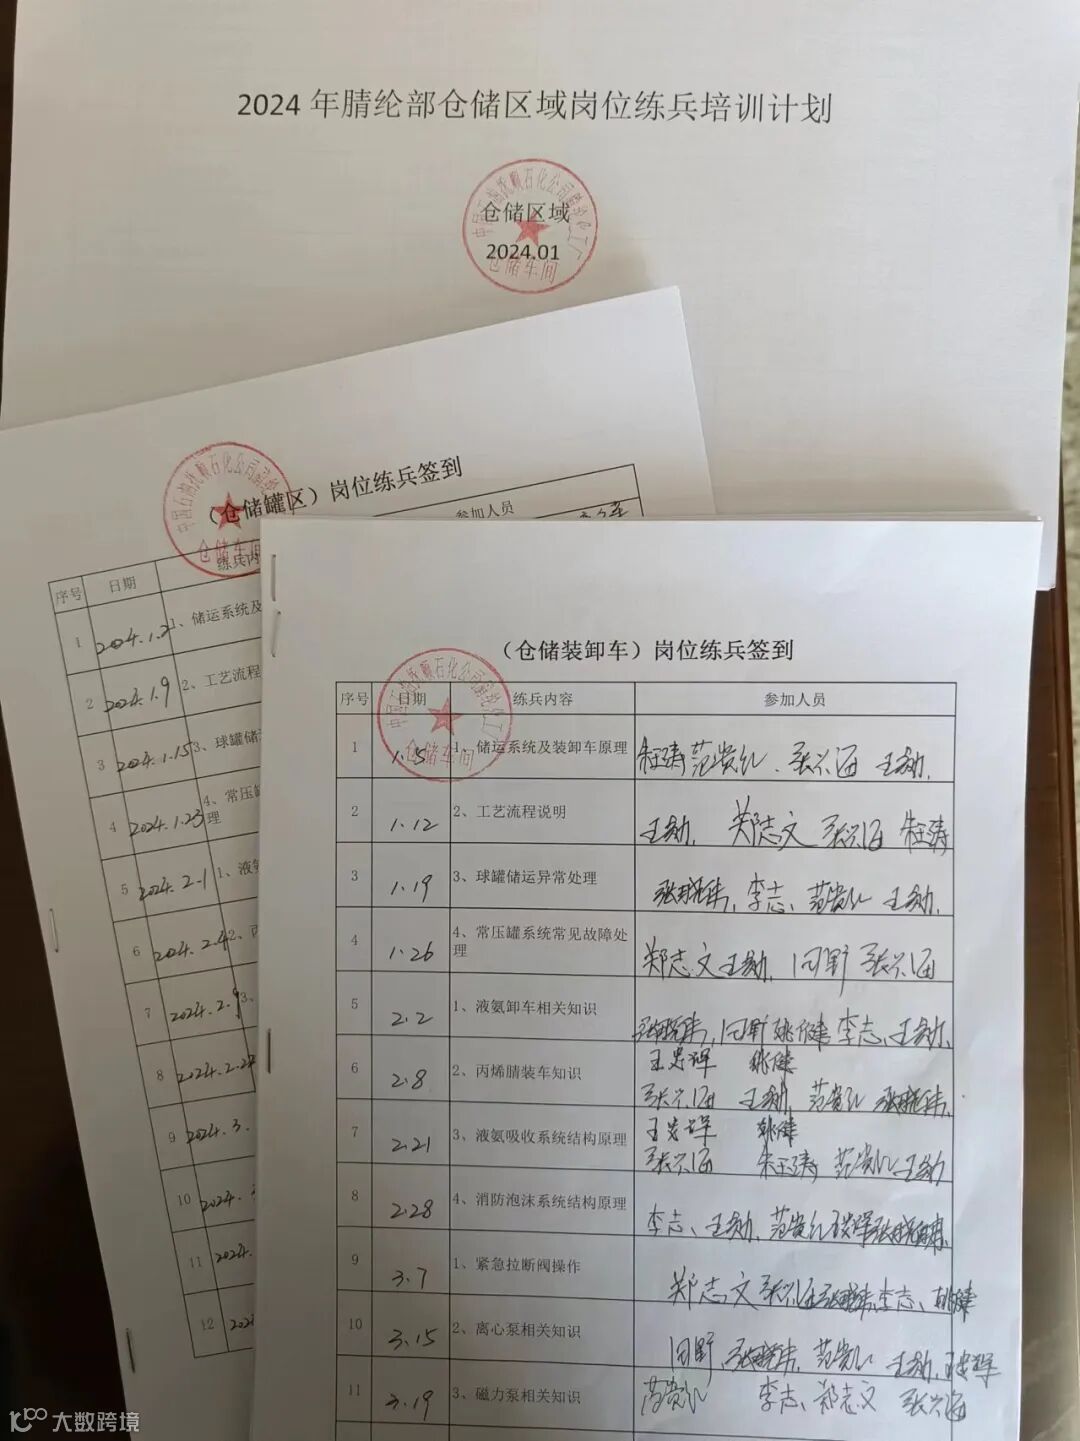 2024 年腈纶部仓储区域岗位练兵培训计划
仓储区域
2024.01
仓储车间
（仓储罐区）岗位练兵签到
仓储车间
序号 日期 练兵内 参加人员
1 2024.1.2 1、储运系统及
2 2024.1.9 2、工艺流程
3 2024.1.15 3、球罐储
4 2024.1.23 4、常压罐
理
5 2024.2.1 1、液氨
6 2024.2.4 2、丙
7 2024.2.9 3、
8 2024.2.24
9 2024.3.
10 2024.
11 2024.
12 202
（仓储装卸车）岗位练兵签到
仓储车间
序号 日期 练兵内容 参加人员
1 1.5 1、储运系统及装卸车原理 朱玉涛 范贵红、张兴海 王勋.
2 1.12 2、工艺流程说明 王勋. 郑志文 张兴海 朱玉涛
3 1.19 3、球罐储运异常处理 李志、范贵红 王勋.
4 1.26 4、常压罐系统常见故障处
理 郑志文 王勋. 回野 张兴海
5 2.2 1、液氨卸车相关知识 回野 姚健 李志、王勋.
6 2.8 2、丙烯腈装车知识 王忠辉 姚健
张兴海 王勋. 范贵红
7 2.21 3、液氨吸收系统结构原理 王忠辉 姚健
张兴海 朱玉涛 范贵红 王勋
8 2.28 4、消防泡沫系统结构原理 李志、王勋. 范贵红
9 3.7 1、紧急拉断阀操作 郑志文 张兴海 李志、姚健
10 3.15 2、离心泵相关知识 回野 范贵红 王勋. 王忠辉
11 3.19 3、磁力泵相关知识 范贵红 李志、郑志文 张兴海
大数跨境